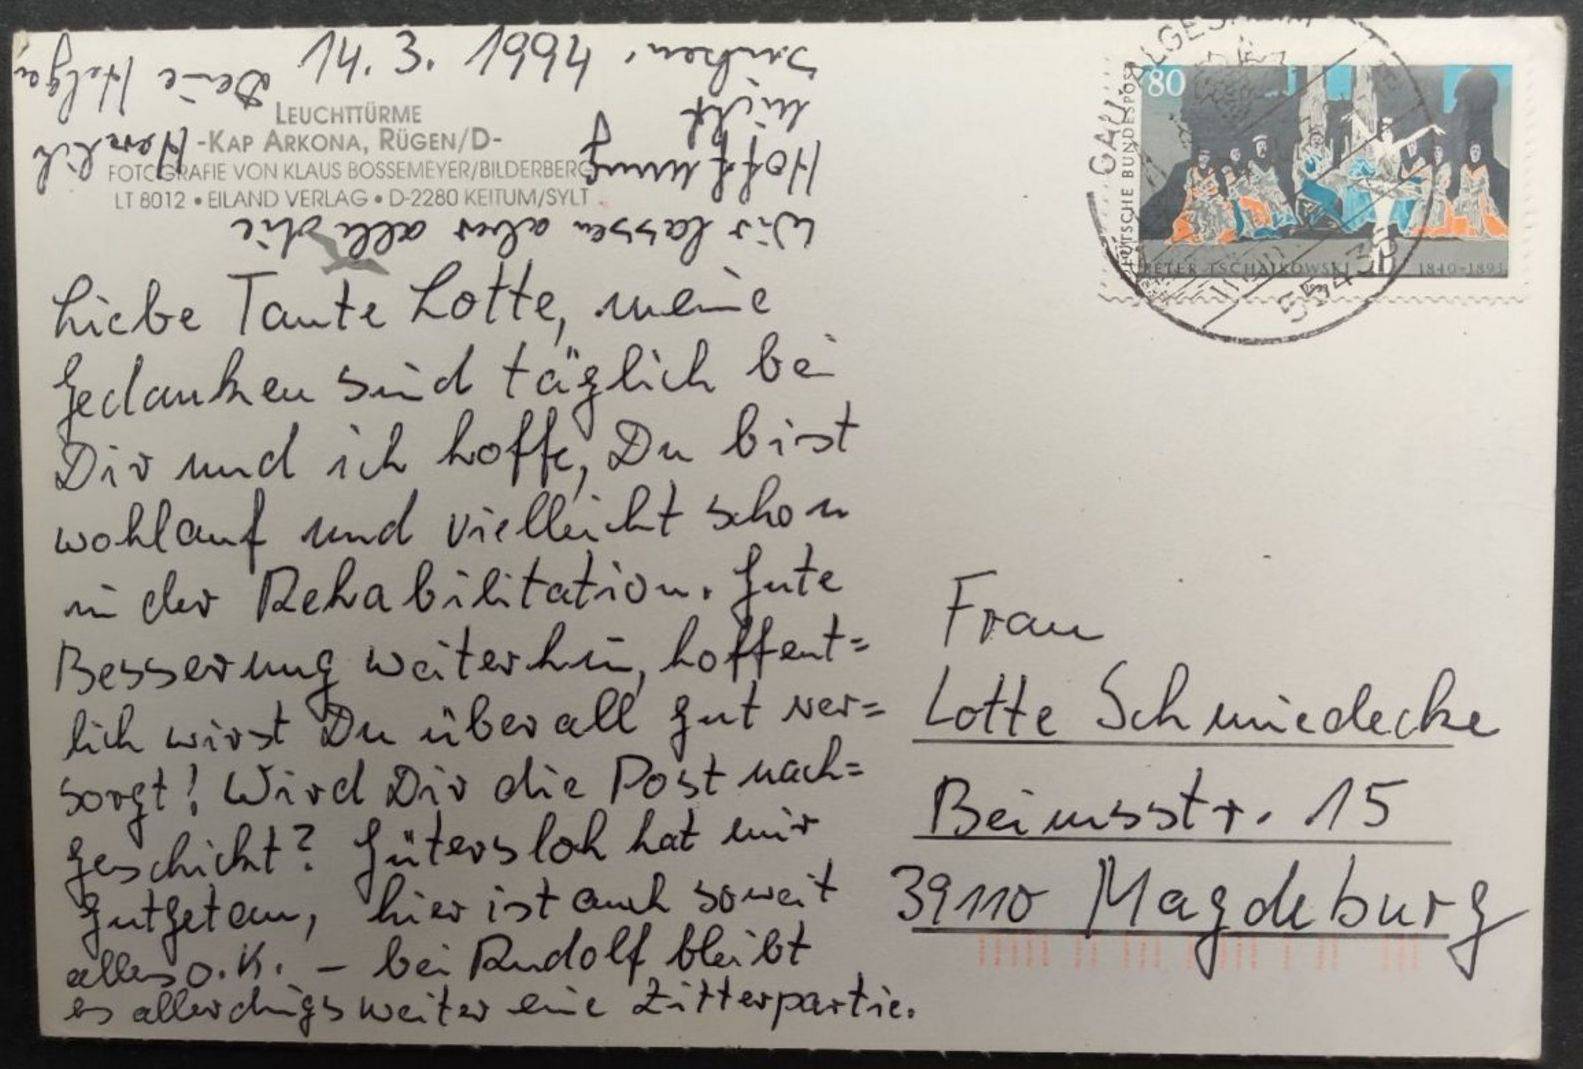 LEUCHTTÜRME
-KAP ARKONA, RÜGEN/D-
FOTOGRAFIE VON KLAUS BOSSEMEYER/BILDERBERG
LT 8012 • EILAND VERLAG • D-2280 KEITUM/SYLT
Liebe Tante Lotte, meine
Gedanken sind täglich bei
Dir und ich hoffe, Du bist
wohlauf und vielleicht schon
in der Rehabilitation. Gute
Besserung weiterhin, hoffent=
lich wirst Du überall gut ver=
sorgt! Wird Dir die Post nach=
geschickt? Gütersloh hat mir
gutgetan, hier ist auch soweit
alles o.K. – bei Rudolf bleibt
es allerdings weiter eine Zitterpartie.
Wir lassen aber alle die
Hoffnung
nicht
sinken.
Herzlich
Deine Helga
14.3.1994
80
DEUTSCHE BUNDESPOST
PETER TSCHAIKOWSKI 1840-1893
GAU-ALGESHEIM
55435
Frau
Lotte Schmiedecke
Beimsstr. 15
39110 Magdeburg